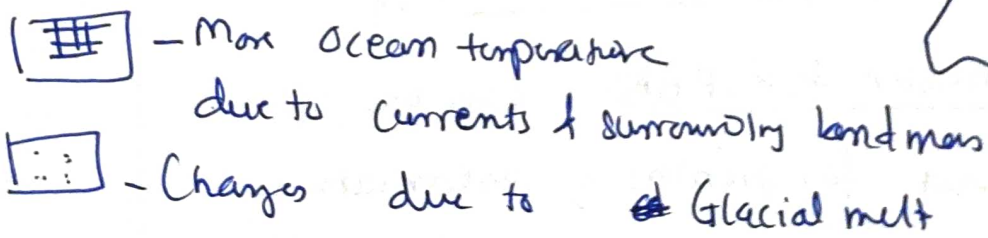 - More Ocean temperature
due to currents & surrounding landmass
- Changes due to Glacial melt